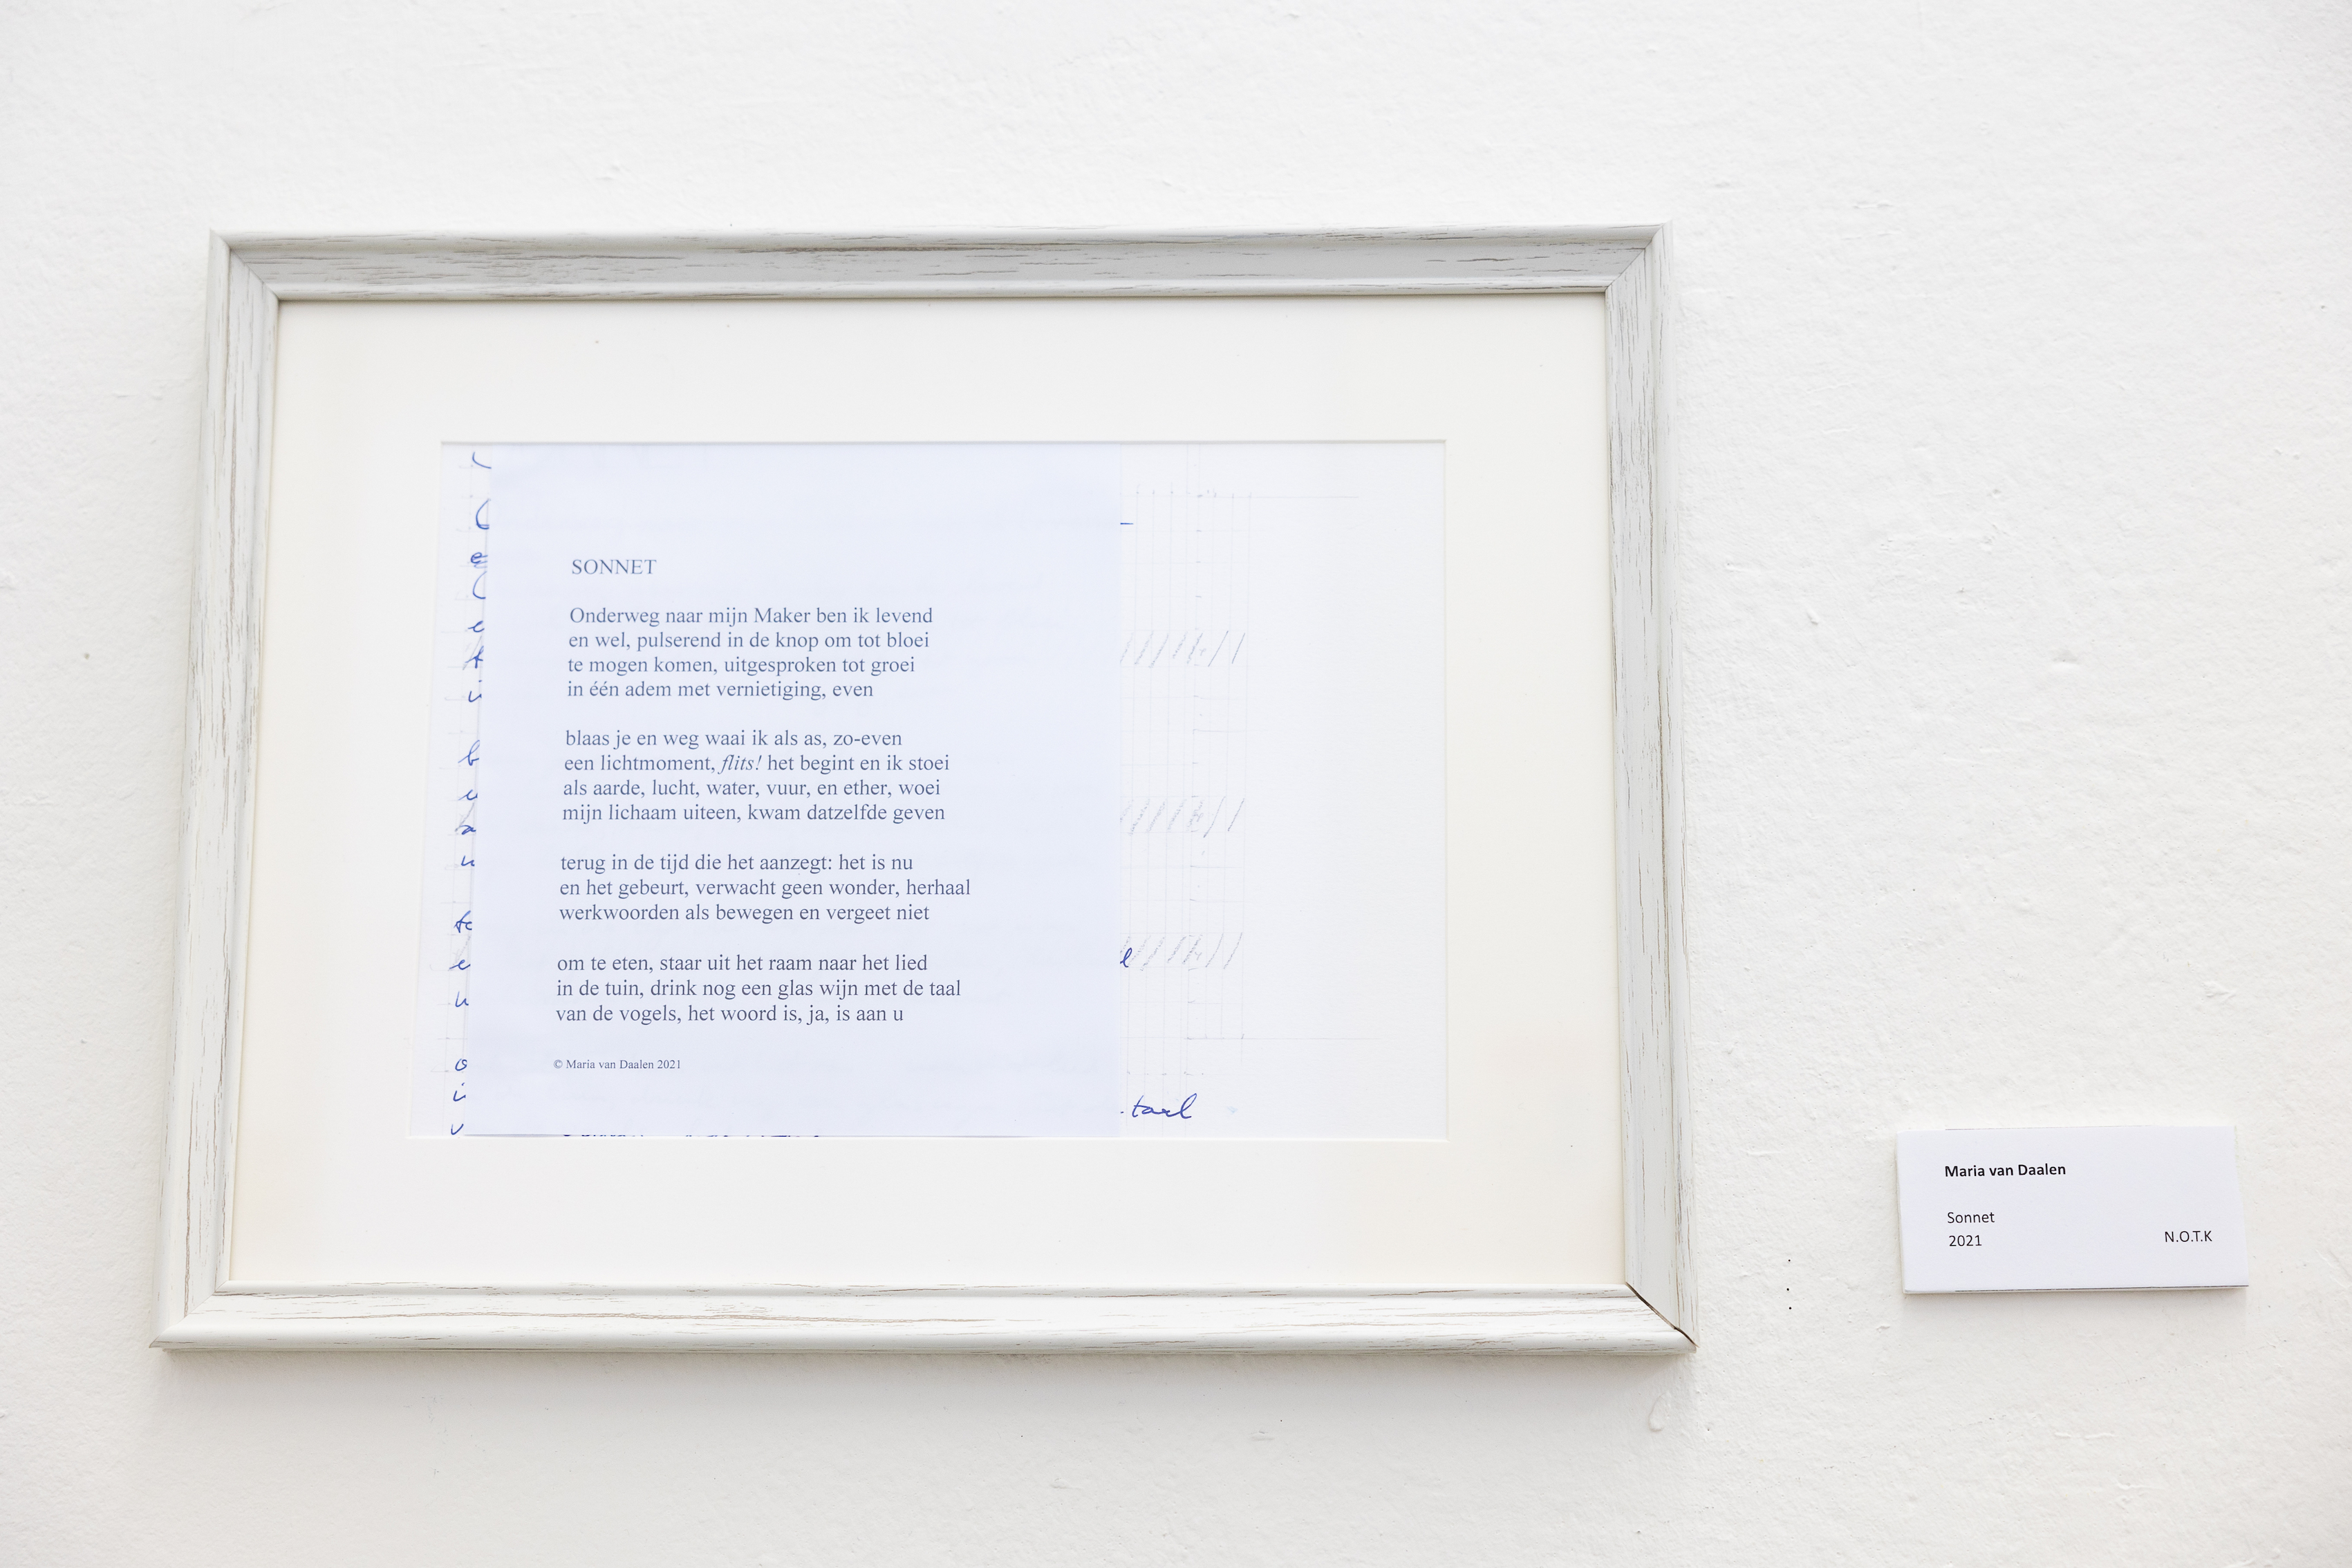 SONNET
Onderweg naar mijn Maker ben ik levend
en wel, pulserend in de knop om tot bloei
te mogen komen, uitgesproken tot groei
in één adem met vernietiging, even
blaas je en weg waai ik als as, zo-even
een lichtmoment, flits! het begint en ik stoei
als aarde, lucht, water, vuur, en ether, woei
mijn lichaam uiteen, kwam datzelfde geven
terug in de tijd die het aanzegt: het is nu
en het gebeurt, verwacht geen wonder, herhaal
werkwoorden als bewegen en vergeet niet
om te eten, staar uit het raam naar het lied
in de tuin, drink nog een glas wijn met de taal
van de vogels, het woord is, ja, is aan u
© Maria van Daalen 2021
taal
Maria van Daalen
Sonnet
2021
N.O.T.K